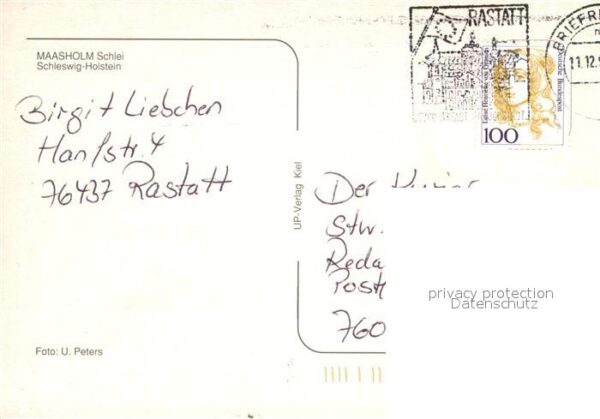 MAASHOLM Schlei
Schleswig-Holstein
Birgit Liebschen
Hanfstr. 4
76437 Rastatt
Foto: U. Peters
UP-Verlag Kiel
RASTATT
BRIEFRE
11.12.9
Deutsche Bundespost
100
Der
Stw.
Reda
Post
760
privacy protection
Datenschutz